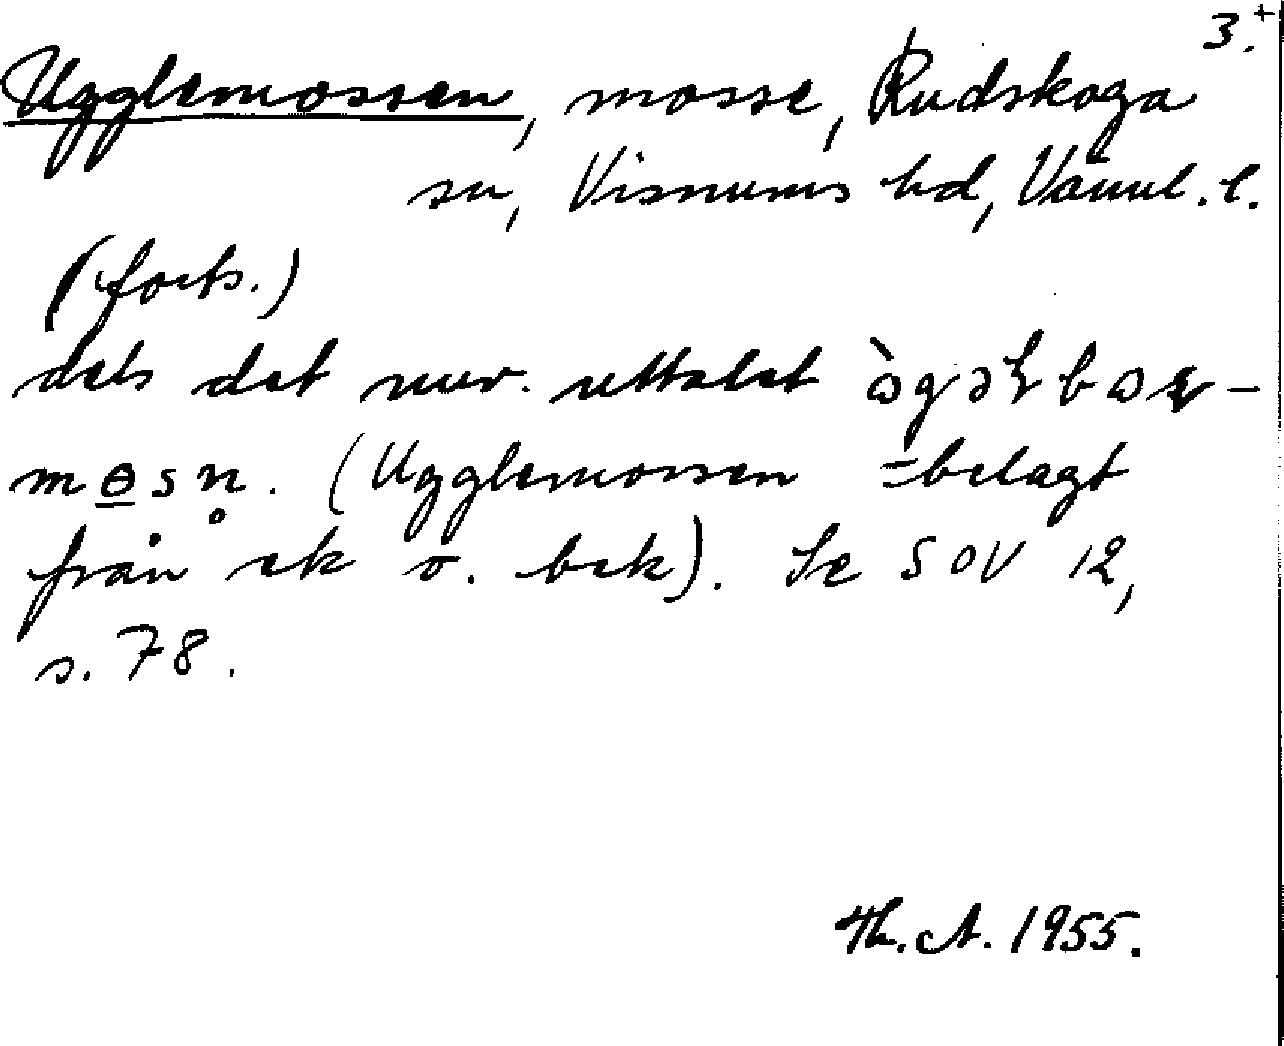 3.+
Ugglemossen, mosse, Rudskoga
sn, Visnums hd, Värml. l.
(forts.)
dels det nuv. uttalet
(Ugglemossen =belagt
från ek o. bek). Se SOV 12,
s. 78.
Th. A. 1955.